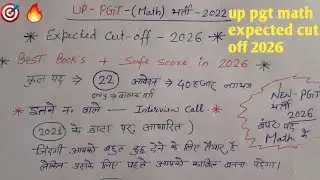 UP-PGT-(Math) भर्ती-2022
* Expected Cut-off - 2026 *
* BEST Book's + Safe score in 2026 *
कुल पद → 22 आवेदन → 40 हजार लगभग
* इतने न० वाले — Interview Call -
(2021 के डाटा पर आधारित)
"जिंदगी आपको बहुत कुछ देने के लिए तैयार है
लेकिन उसके लिए पहले आपको काबिल बनना पड़ेगा।
NEW-PGT
भर्ती
2026
बंपर पद है
Math के
up pgt math
expected cut
off 2026